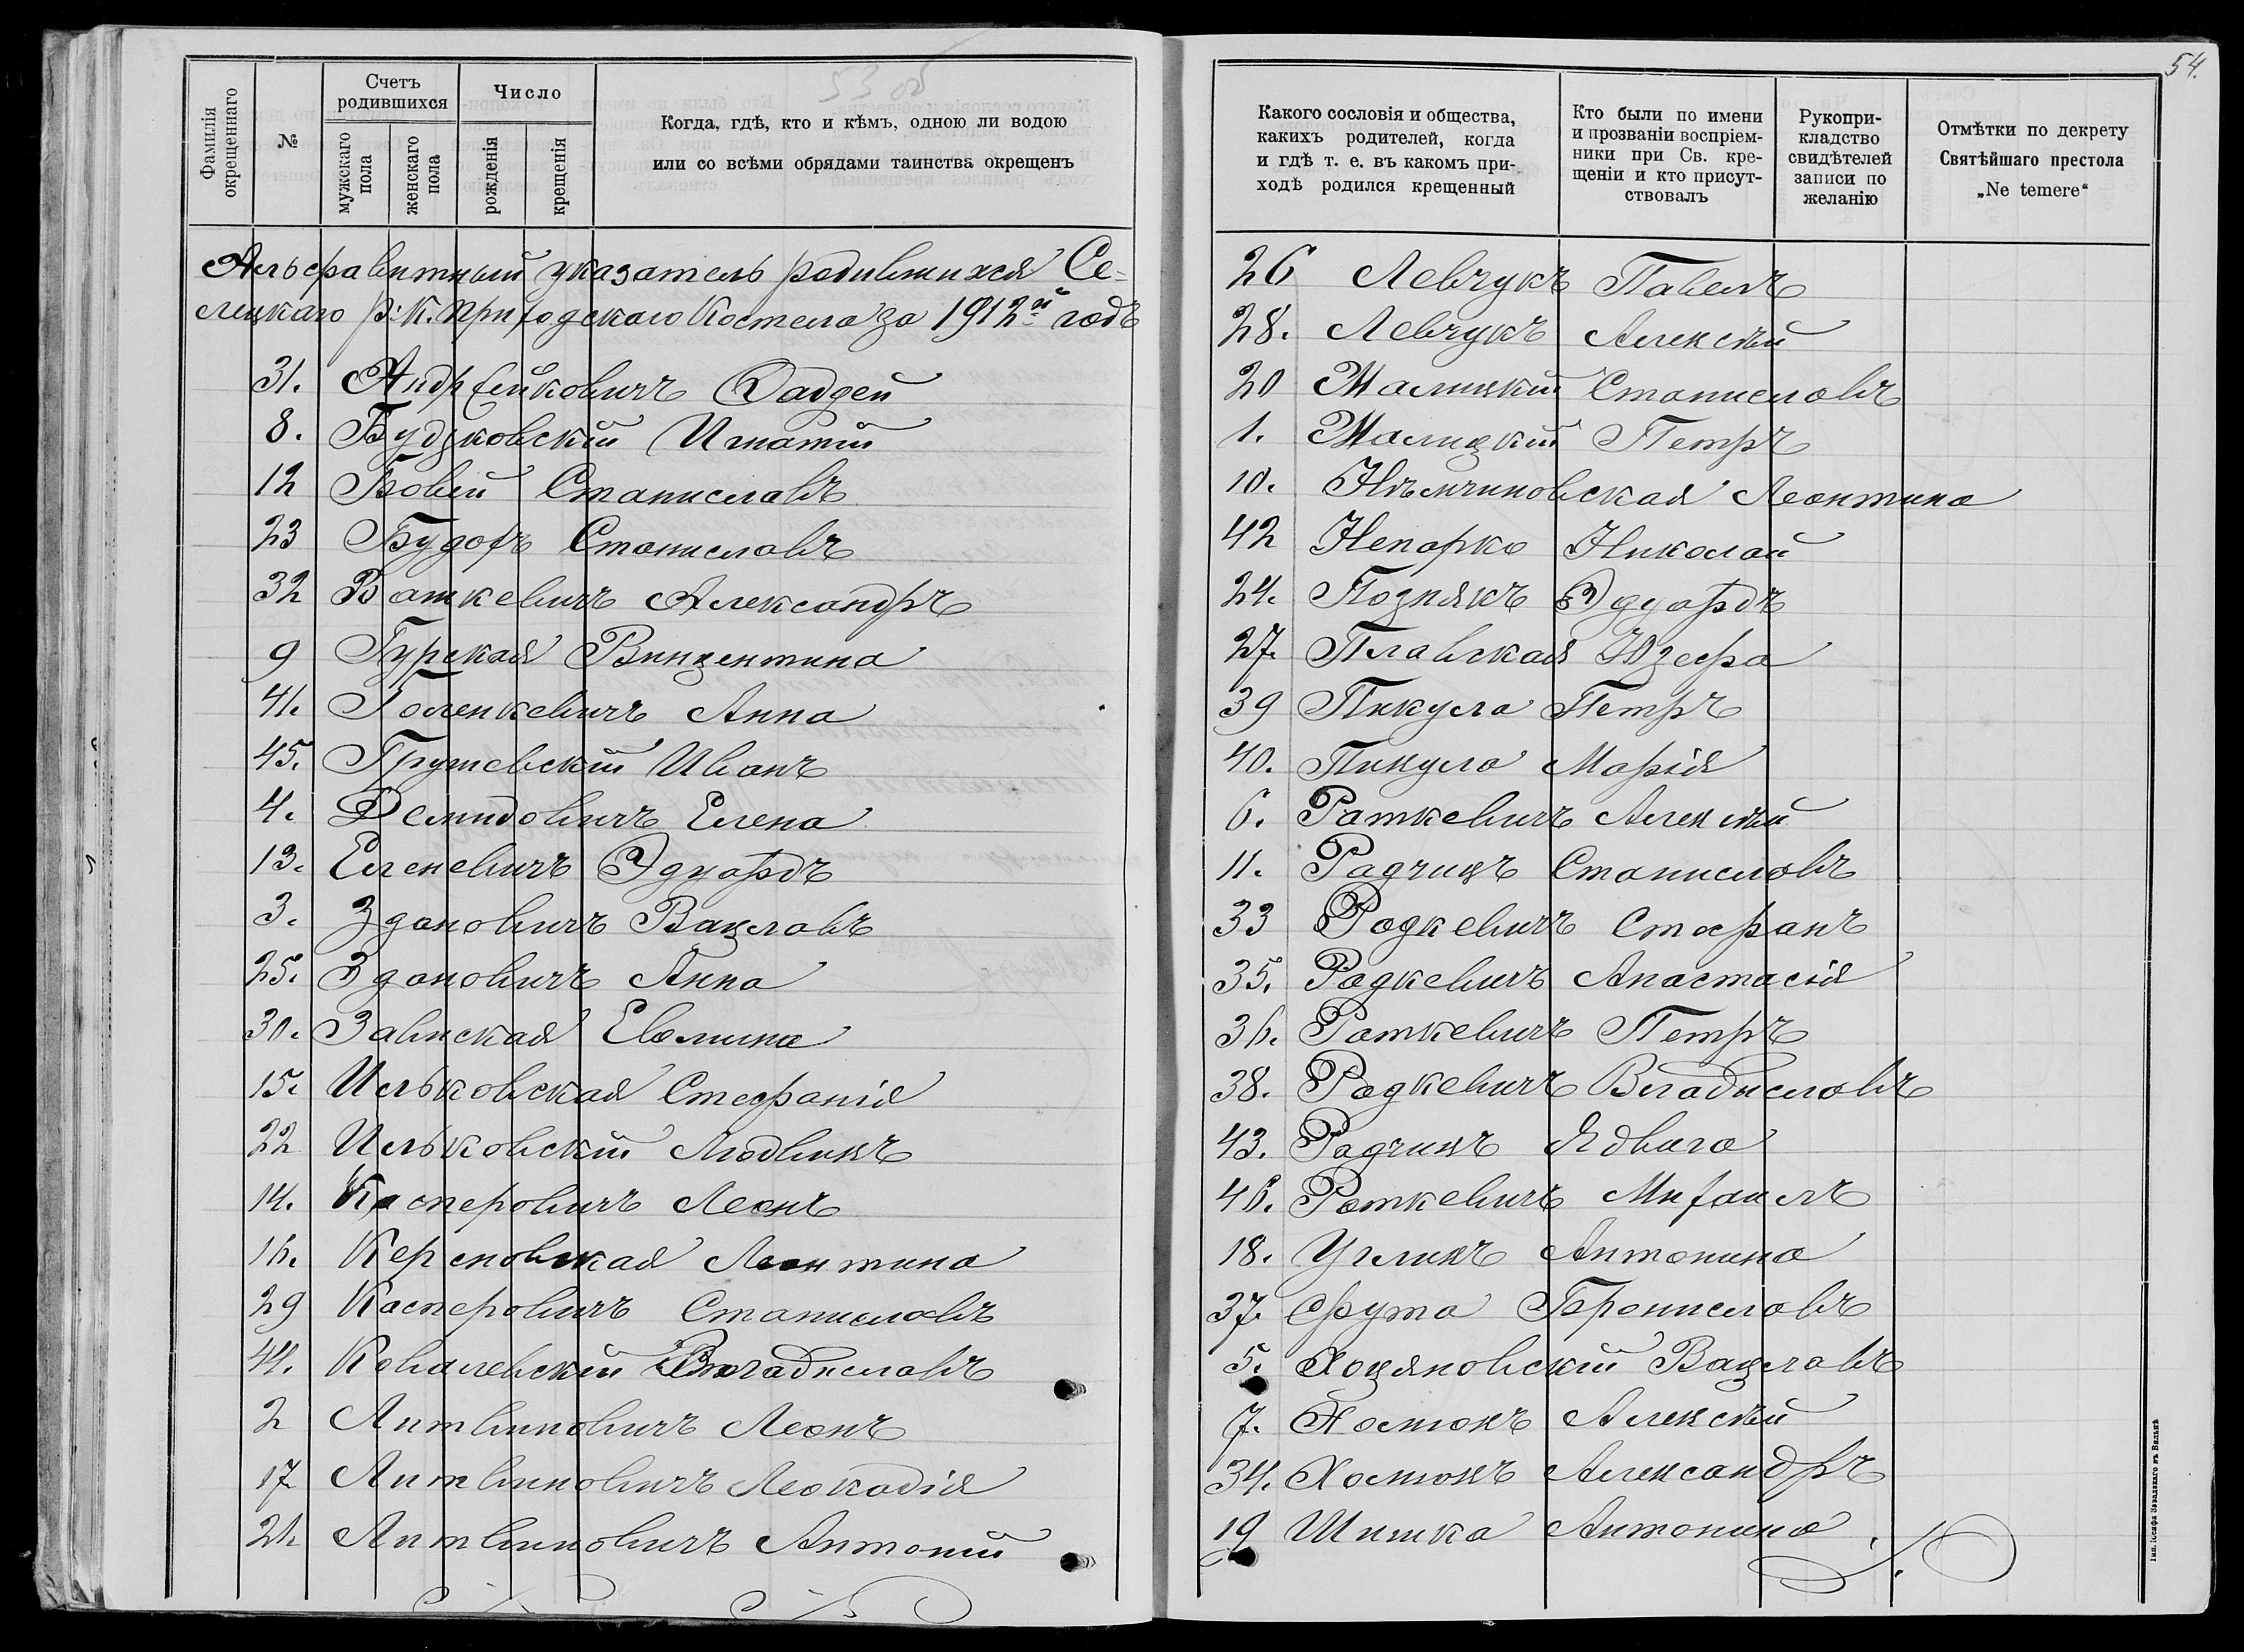 54.
Фамилія окрещеннаго
№
Счетъ родившихся
мужскаго пола
женскаго пола
Число
рожденія
крещенія
Когда, гдѣ, кто и кѣмъ, одною ли водою
или со всѣми обрядами таинства окрещенъ
Альфавитный указатель родившихся Се-
лецкаго р: к. приходскаго Костела за 1912й годъ
31. Андрейковичъ Фаддей
8. Будзковскій Игнатій
12 Бовей Станиславъ
23 Будохъ Станиславъ
32 Ваткевичъ Александръ
9 Гурская Винцентина
41.Голенкевичъ Анна
45. Грушевскій Иванъ
4. Демидовичъ Елена
13. Еленевичъ Эдуардъ
3. Здановичъ Вацлавъ
25. Здановичъ Анна
30. Завиская Евелина
15. Ильковская Стефанія
22 Ильковскій Людвикъ
14. Касперовичъ Леонъ
16. Керсновская Леонтина
29 Касперовичъ Станиславъ
44. Ковалевскій Владиславъ
2 Литвиновичъ Леонъ
17 Литвиновичъ Леокадія
21. Литвиновичъ Антоній
Какого сословія и общества,
какихъ родителей, когда
и гдѣ т. е. въ какомъ при-
ходѣ родился крещенный
Кто были по имени
и прозваніи воспріем-
ники при Св. кре-
щеніи и кто присут-
ствовалъ
Рукопри-
кладство
свидѣтелей
записи по
желанію
Отмѣтки по декрету
Святѣйшаго престола
„Ne temere“
26 Левчукъ Павелъ
28. Левчукъ Алексѣй
20 Малицкій Станиславъ
1. Малицкій Петръ
10. Нѣмчиновская Леонтина
42 Непорко Николай
24. Познякъ Эдуардъ
27. Плавская Юзефа
39 Пикула Петръ
40. Пикула Марія
6. Раткевичъ Алексѣй
11. Радчицъ Станиславъ
33 Радкевичъ Стефанъ
35. Радкевичъ Анастасія
36. Раткевичъ Петръ
38. Радкевичъ Владиславъ
43. Радчицъ Ядвига
46. Раткевичъ Михаилъ
18. Угликъ Антонина
37. Фрута Брониславъ
5. Хоцяновскій Вацлавъ
7. Хомюкъ Алексѣй
34. Хомюкъ Александръ
19 Шишка Антонина
Тип. Іосифа Завадзкаго въ Вильнѣ